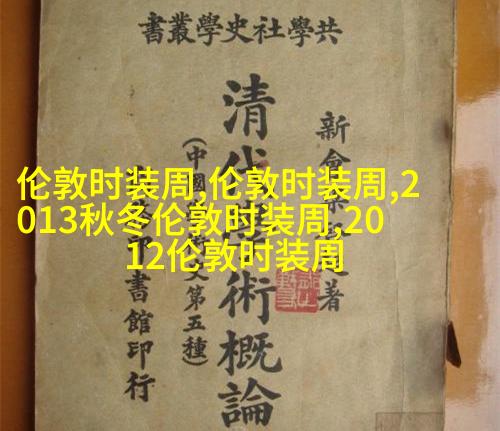 共學社史學叢書
新會梁著
清代學術概論
(中國第五種)
書館印行
伦敦时装周,伦敦时装周,2
013秋冬伦敦时装周,20
12伦敦时装周